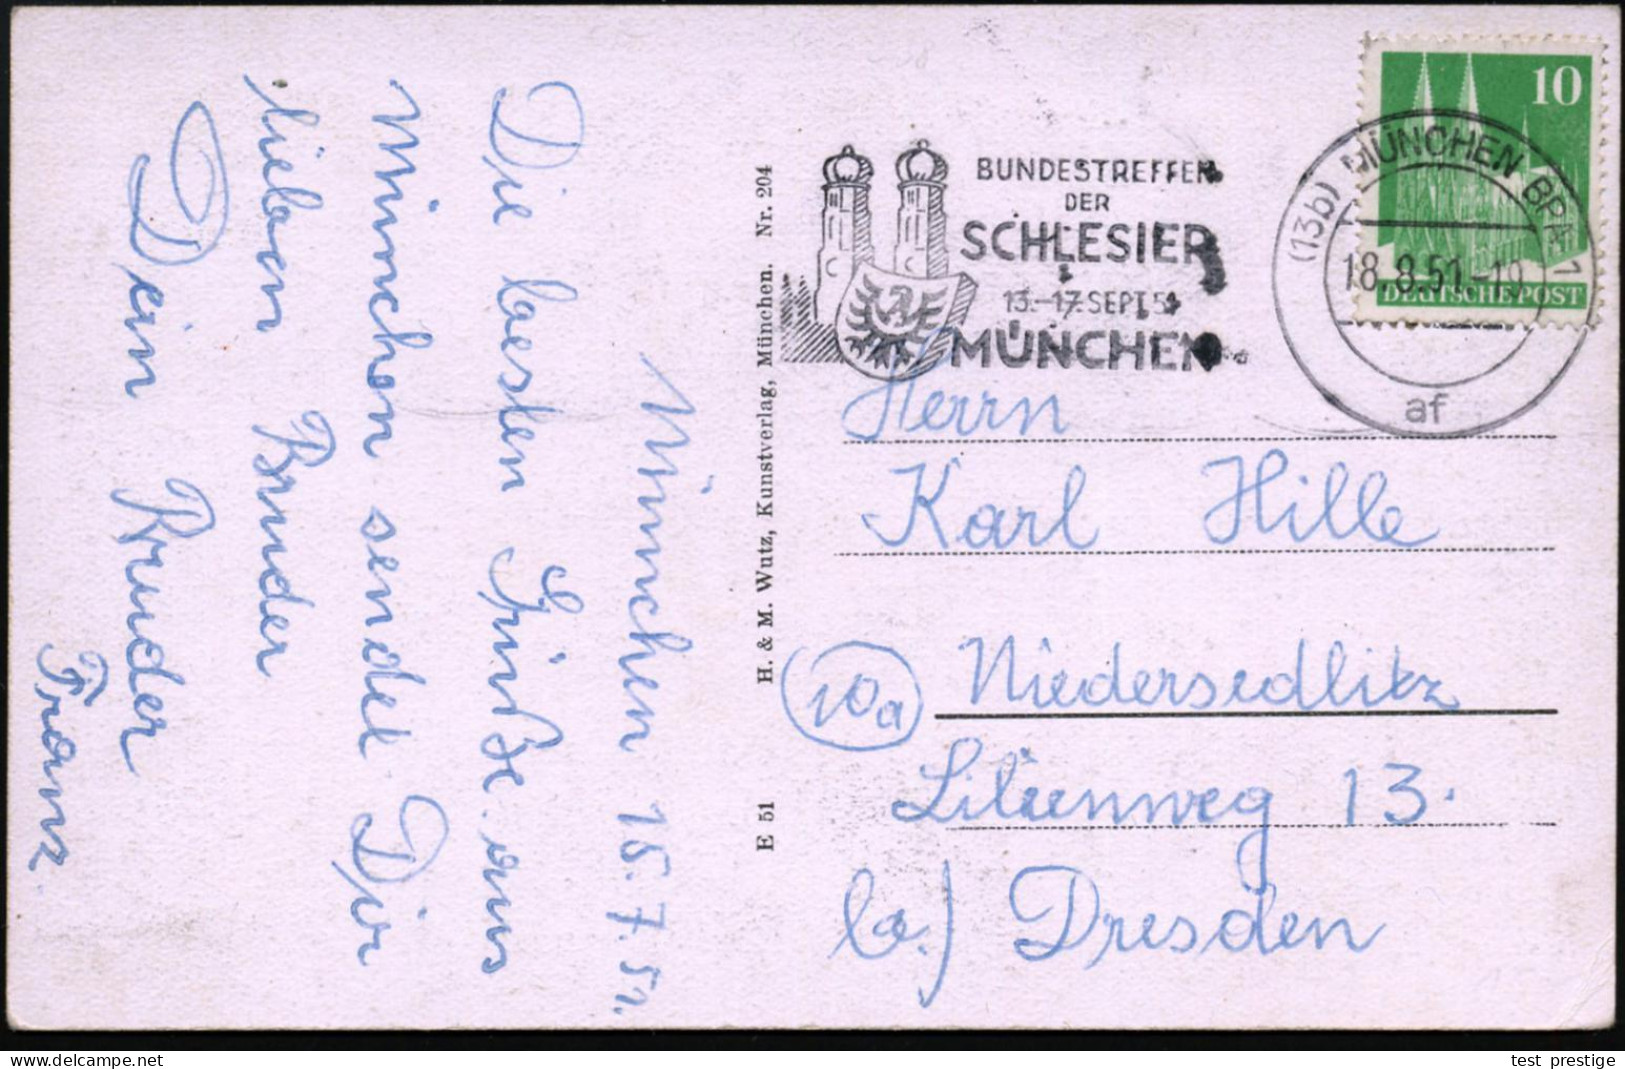 München 15.7.51.
Die besten Grüße aus
München sendet Dir
lieben Bruder
Dein Bruder
Franz.
H. & M. Wutz, Kunstverlag, München. Nr. 204
E 51
BUNDESTREFFEN
DER
SCHLESIER
13.-17. SEPT. 51
MÜNCHEN
10
DEUTSCHE POST
(13b) MÜNCHEN BPA 1
18.8.51.-19
af
Herrn
Karl Hille
10a Niedersedlitz
Lilienweg 13.
b.) Dresden
test prestige